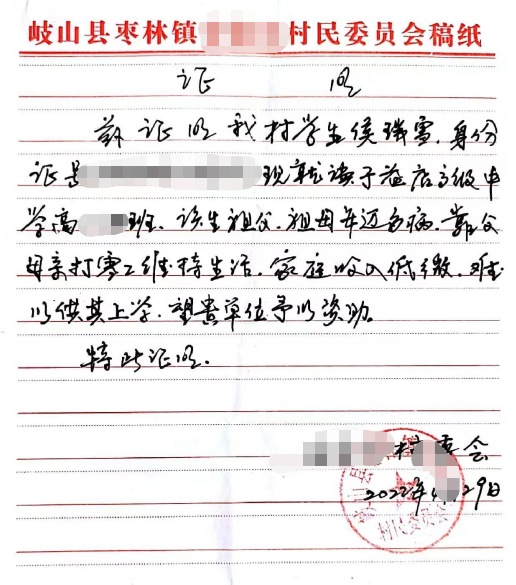 岐山县枣林镇 村民委员会稿纸
证 明
兹证明我村学生侯璞雪,身份
证号 现就读于益店高级中
学高 班。该生祖父、祖母年迈多病,靠父
母亲打零工维持生活,家庭收入低微,难
以供其上学,望贵单位予以资助。
特此证明。
村委会
2022年4. 29日
岐山县 镇
村民委员会